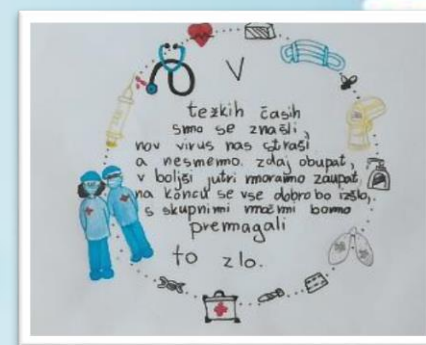 V
težkih časih
smo se znašli,
nov virus nas straši
a nesmemo zdaj obupat,
v boljši jutri moramo zaupat,
na koncu se vse dobro bo izšlo,
s skupnimi močmi bomo
premagali
to zlo.